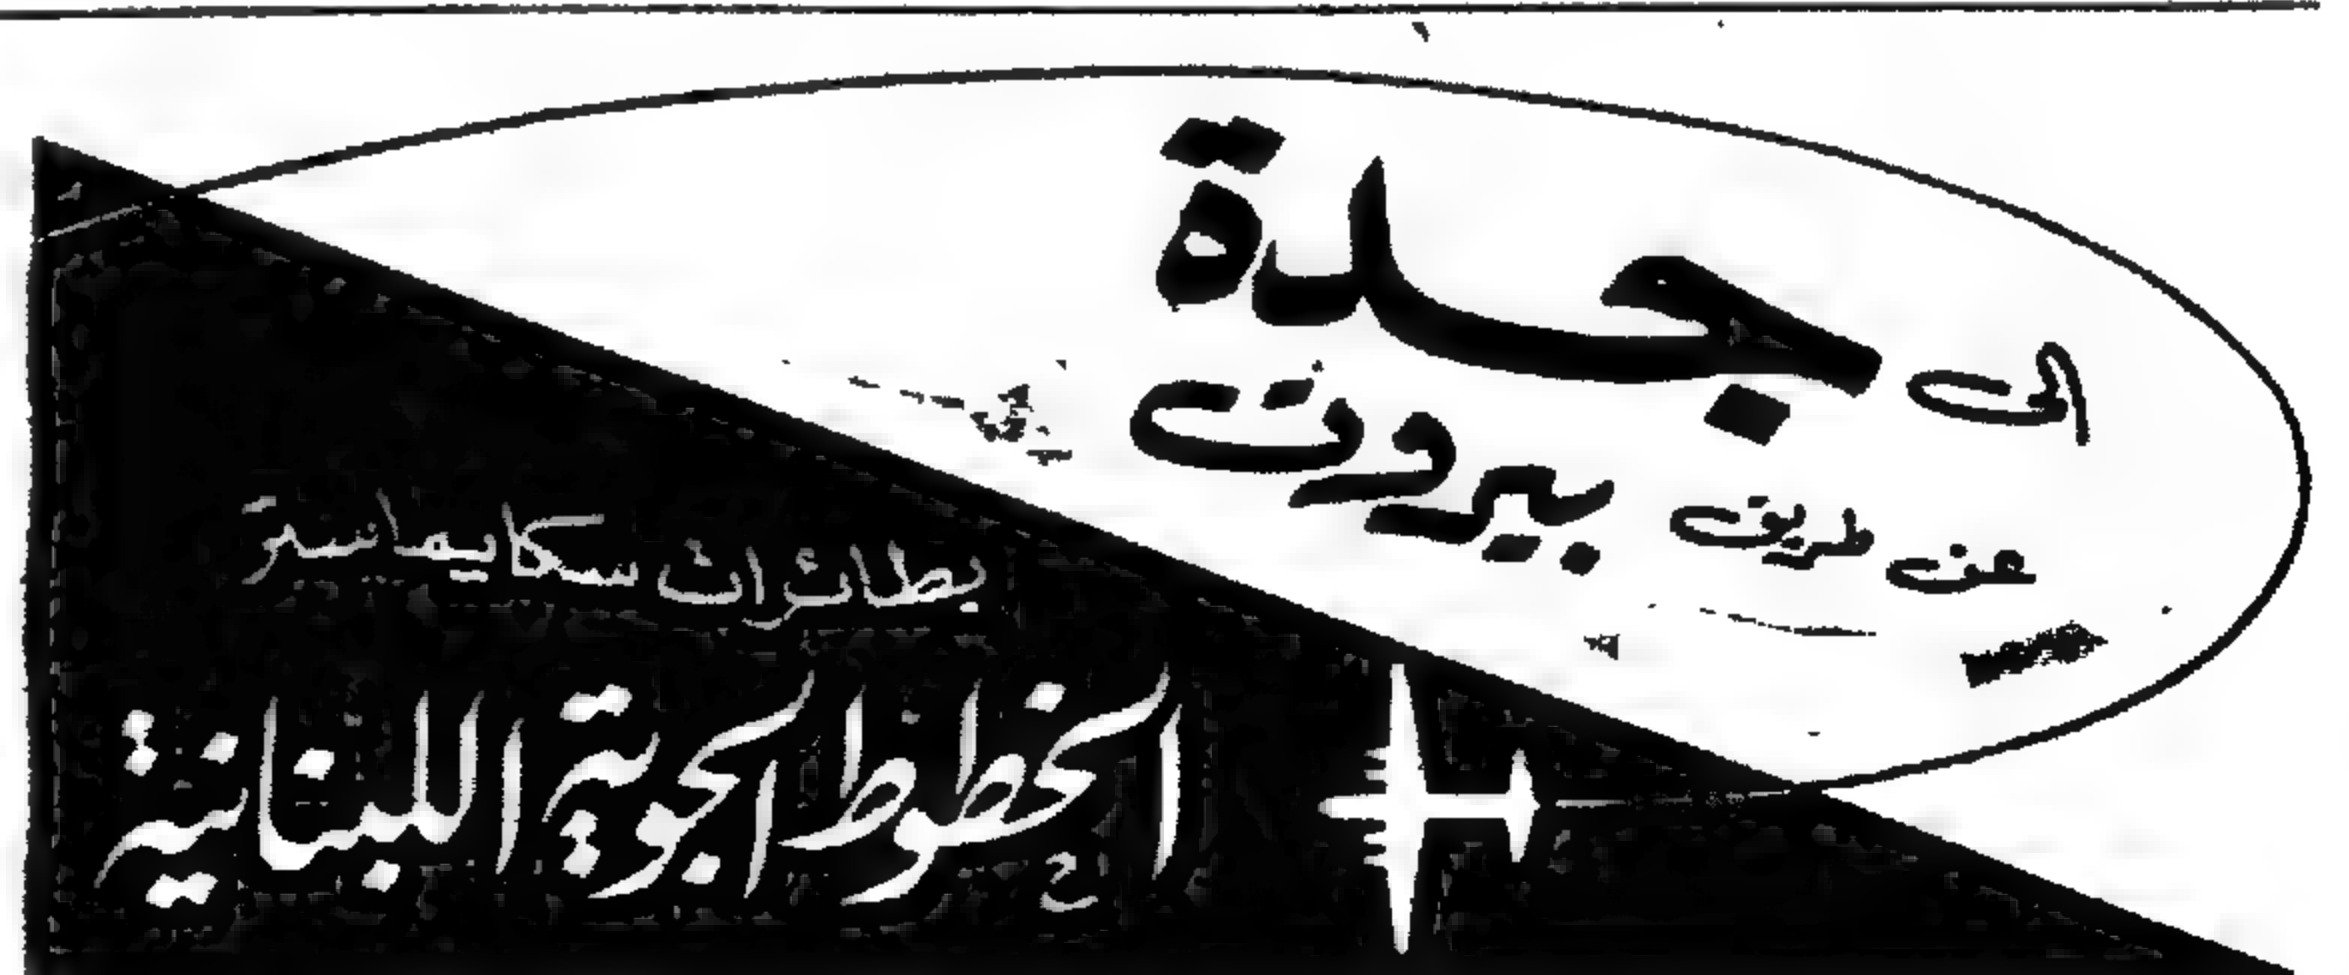 الى جدة
عن طريق بيروت
بطائرات سكايماستر
الخطوط الجوية اللبنانية